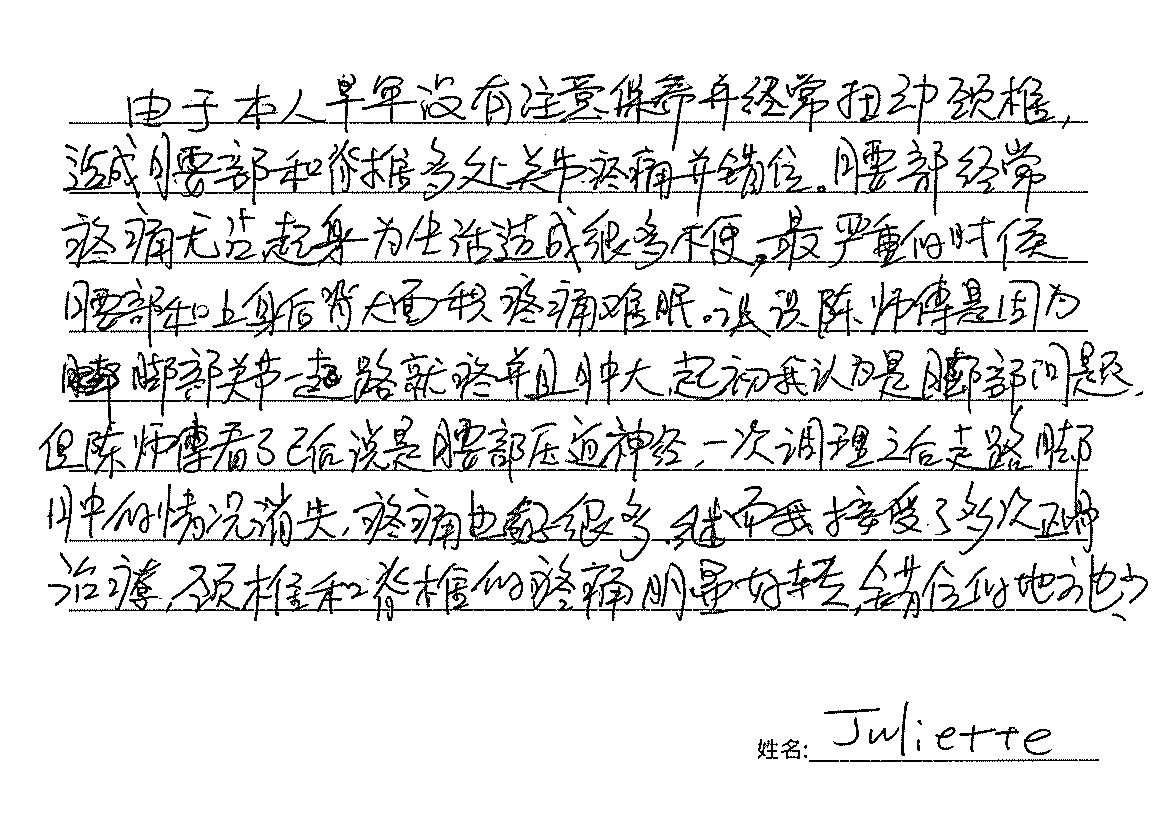 由于本人早年没有注意保养并经常扭动颈椎,
造成腰部和脊椎多处关节疼痛并错位。腰部经常
疼痛无法起身为生活造成很多不便。最严重的时候
腰部和上身后背大面积疼痛难眠。认识陈师傅是因为
脚部关节一走路就疼并且肿大,起初我认为是脚部问题,
但陈师傅看了之后说是腰部压迫神经,一次调理之后走路脚
肿的情况消失,疼痛也轻很多,继而我接受了多次正骨
治疗,颈椎和脊椎的疼痛明显好转,错位的地方也少
姓名: Juliette